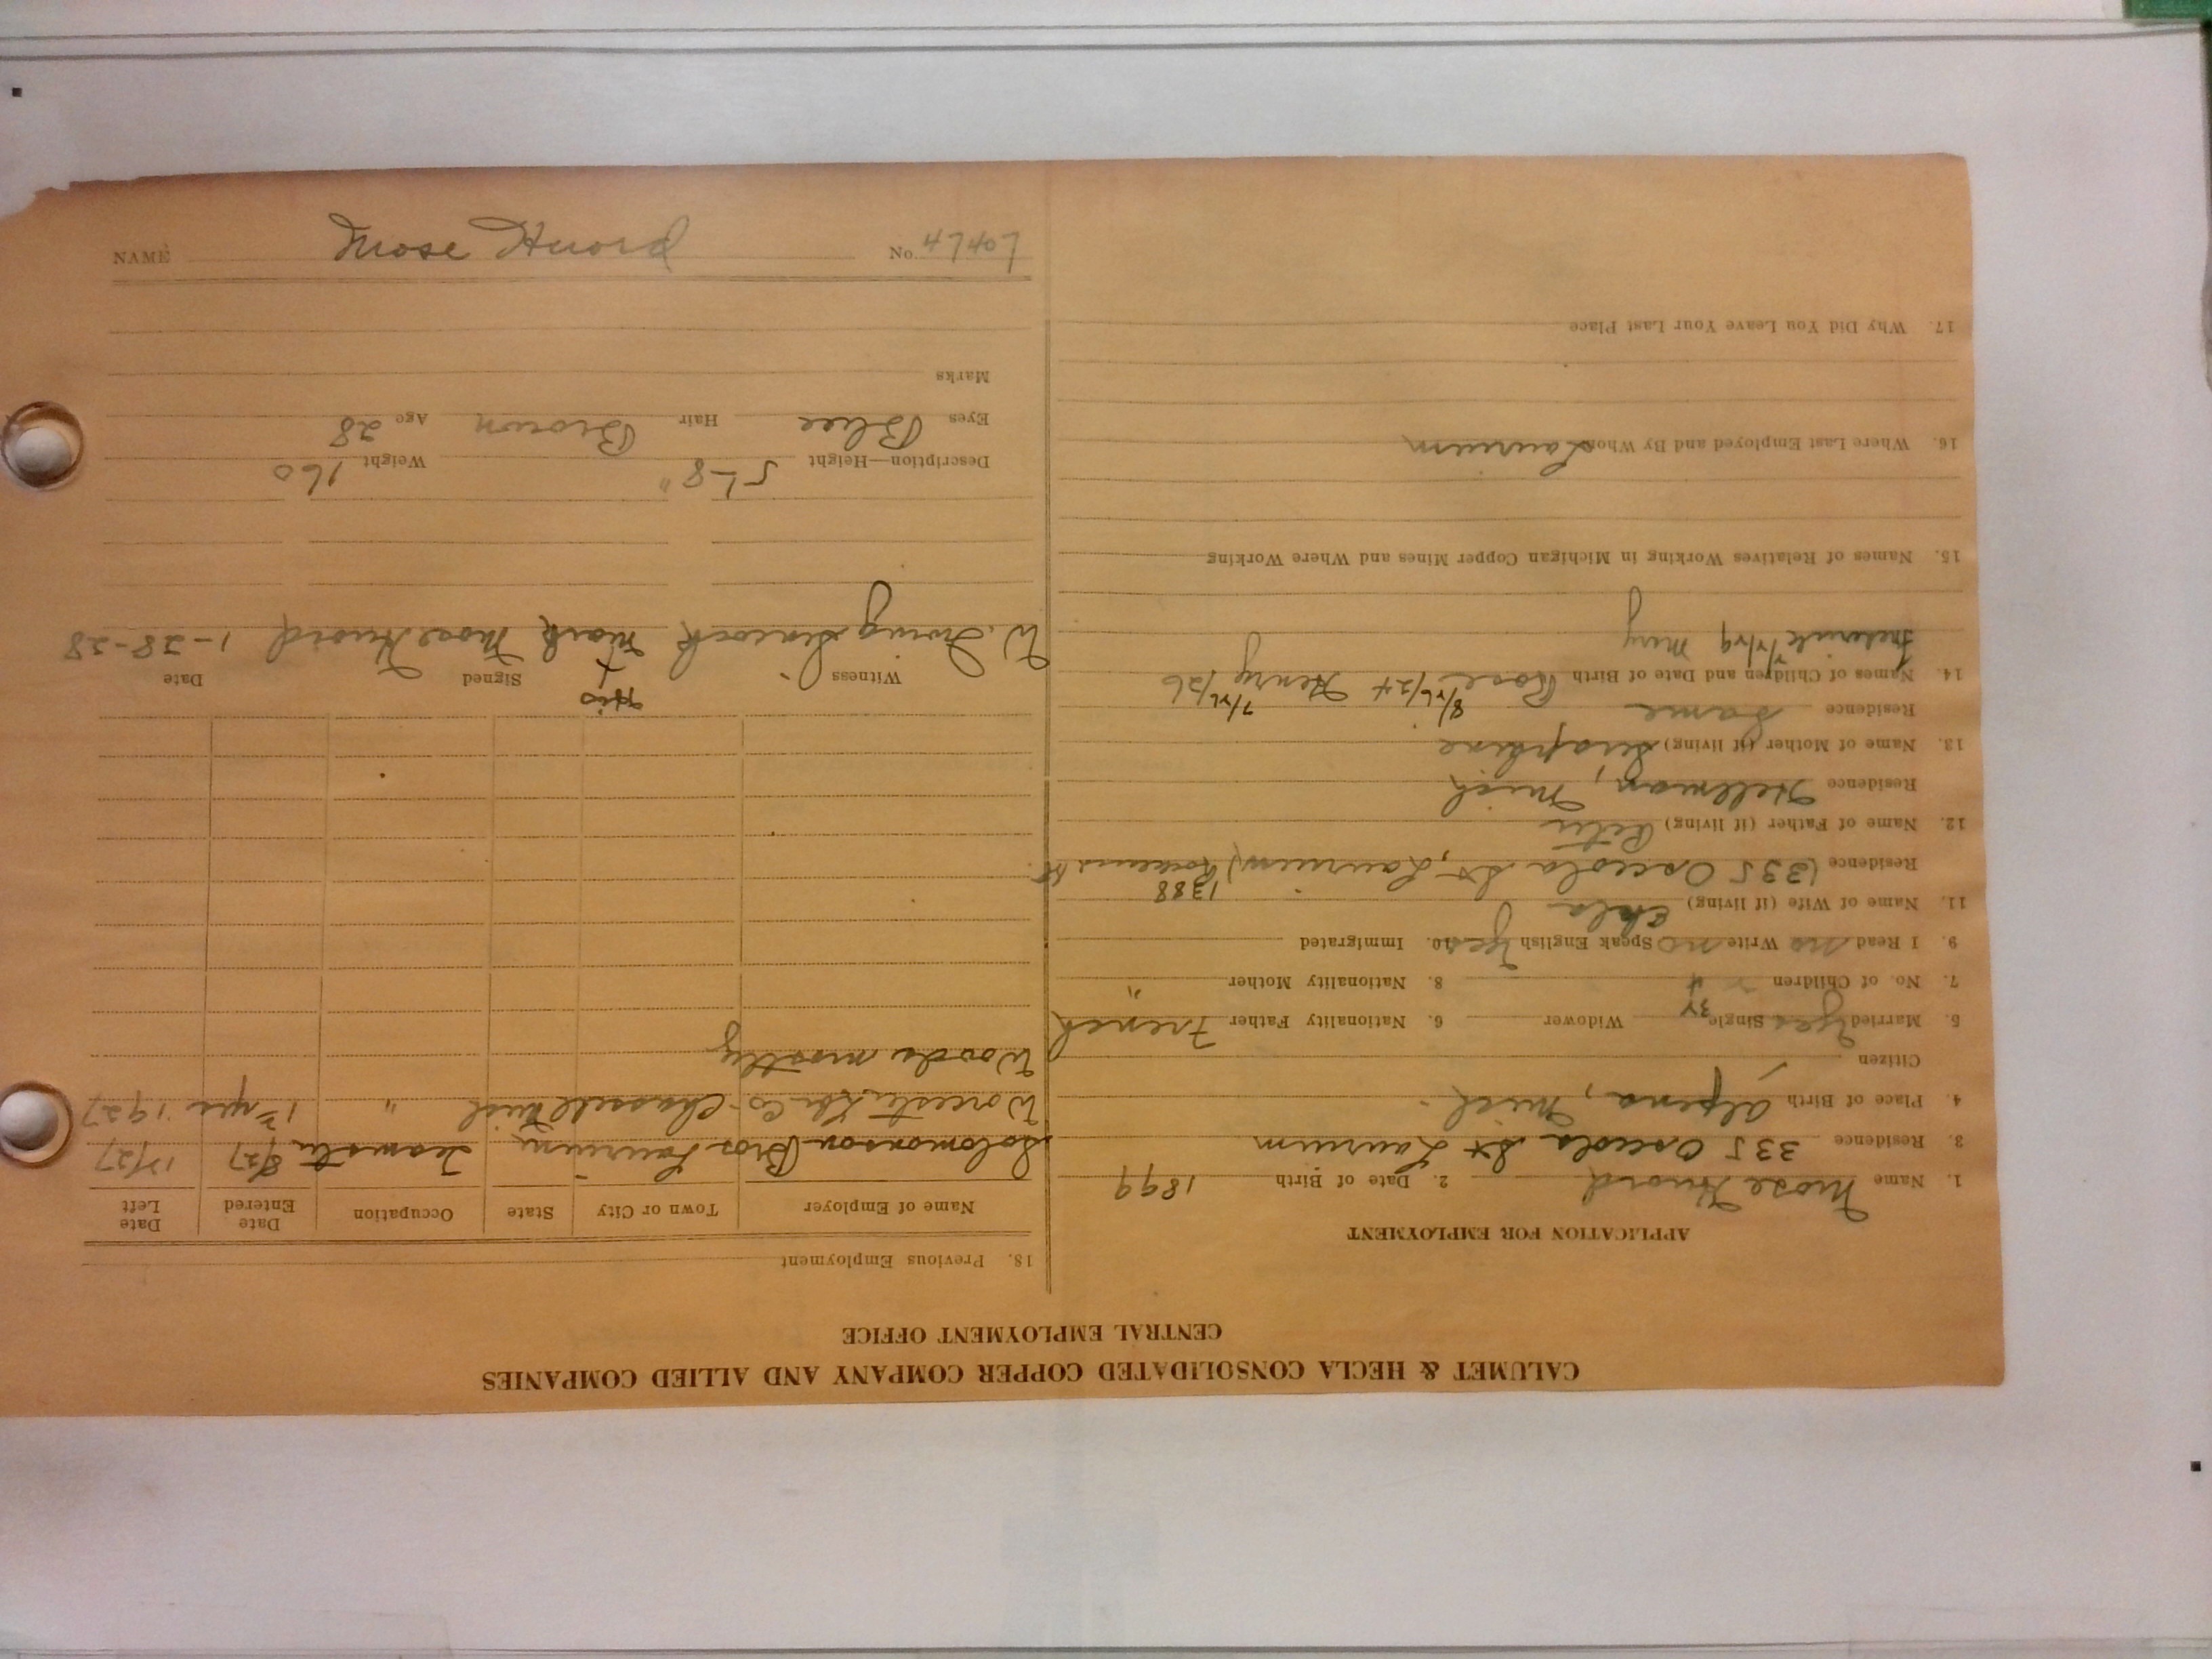 CALUMET & HECLA CONSOLIDATED COPPER COMPANY AND ALLIED COMPANIES
CENTRAL EMPLOYMENT OFFICE
APPLICATION FOR EMPLOYMENT
1. Name Mose Huord 2. Date of Birth 1899
3. Residence 335 Osceola St Laurium
4. Place of Birth Alpena, Mich.
Citizen
5. Married Yes Single Widower 6. Nationality Father French
7. No. of Children 4 8. Nationality Mother "
9. I Read no Write no Speak English Yes 10. Immigrated
11. Name of Wife (if living)
1388
Residence (335 Osceola St, Laurium) Rockland St.
12. Name of Father (if living) Peter
Residence Hillman, Mich
13. Name of Mother (if living)
Residence Same
14. Names of Children and Date of Birth Rose 8/26/24 Henry 7/26/26
Frederick Mary
15. Names of Relatives Working in Michigan Copper Mines and Where Working
16. Where Last Employed and By Whom Laurium
17. Why Did You Leave Your Last Place
18. Previous Employment
Name of Employer Town or City State Occupation Date Entered Date Left
Solomonson Bros Laurium Teamster 8/27 12/27
Worcester Lbr Co. Chassell Mich " 1927
Woods mostly
Witness Signed Date
W. Irving His + mark Mose Huord 1-28-28
Description—Height 5'-8" Weight 160
Eyes Blue Hair Brown Age 28
Marks
NAME Mose Huord No. 47407